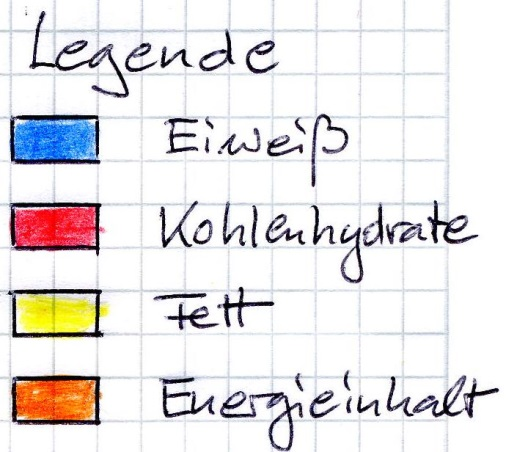 Legende
Eiweiß
Kohlenhydrate
Fett
Energieinhalt